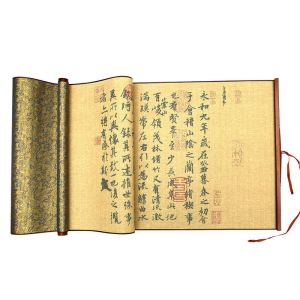 永和九年歲在癸丑暮春之初會
于會稽山陰之蘭亭脩稧事
也羣賢畢至少長咸集此地
有崇山峻領茂林脩竹又有清流激
湍暎帶左右引以為流觴曲水
敘時人錄其所述雖世殊事
異所以興懷其致一也後之攬
者亦將有感於斯